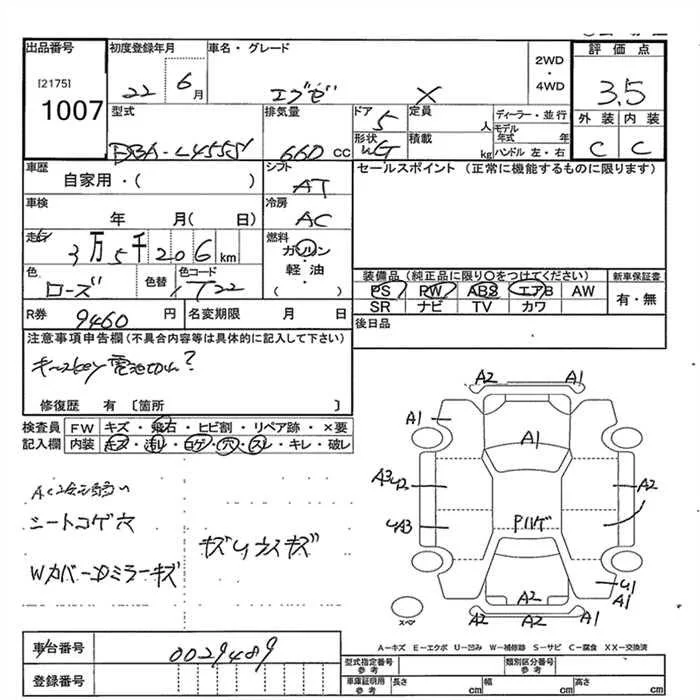 出品番号 初度登録年月 車名・グレード 2WD・4WD 評価点
[2175] 22 6月 エブゼ X 3.5
1007 型式 排気量 ドア 5 定員 人 ディーラー・並行 外装 内装
モデル年式 年
DBA-L455S 660cc 形状 積載 kg ハンドル 左・右 C C
車歴 シフト セールスポイント (正常に機能するものに限ります)
自家用・( ) AT
車検 冷房
年 月( 日) AC
走行 燃料
3万5千206km ガソリン
色 色替 色コード 軽油 装備品 (純正品に限り○をつけてください) 新車保証書
ローズ T22 ( ) PS PW ABS エアB AW 有・無
SR ナビ TV カワ
R券 9460円 名変期限 月 日 後日品
注意事項申告欄(不具合内容等は具体的に記入して下さい)
キースkey 電池切れ?
修復歴 有 〔箇所 〕
検査員 FW キズ・飛石・ヒビ割・リペア跡・×要
記入欄 内装 キズ・汚レ・コゲ・穴・スレ・キレ・破レ
シートコゲ穴
WカバーDミラーキズ
A2 A1
A1 A1
A3 U2 A2
UA3 Pハゲ
U1
A1
A2
A2 A1
スペア
A-キズ E-エクボ U-凹み W-補修跡 S-サビ C-腐食 XX-交換済
車台番号 0029489
型式指定番号 参考 類別区分番号 参考
登録番号
車庫証明用 参考 長さ cm 幅 cm 高さ cm